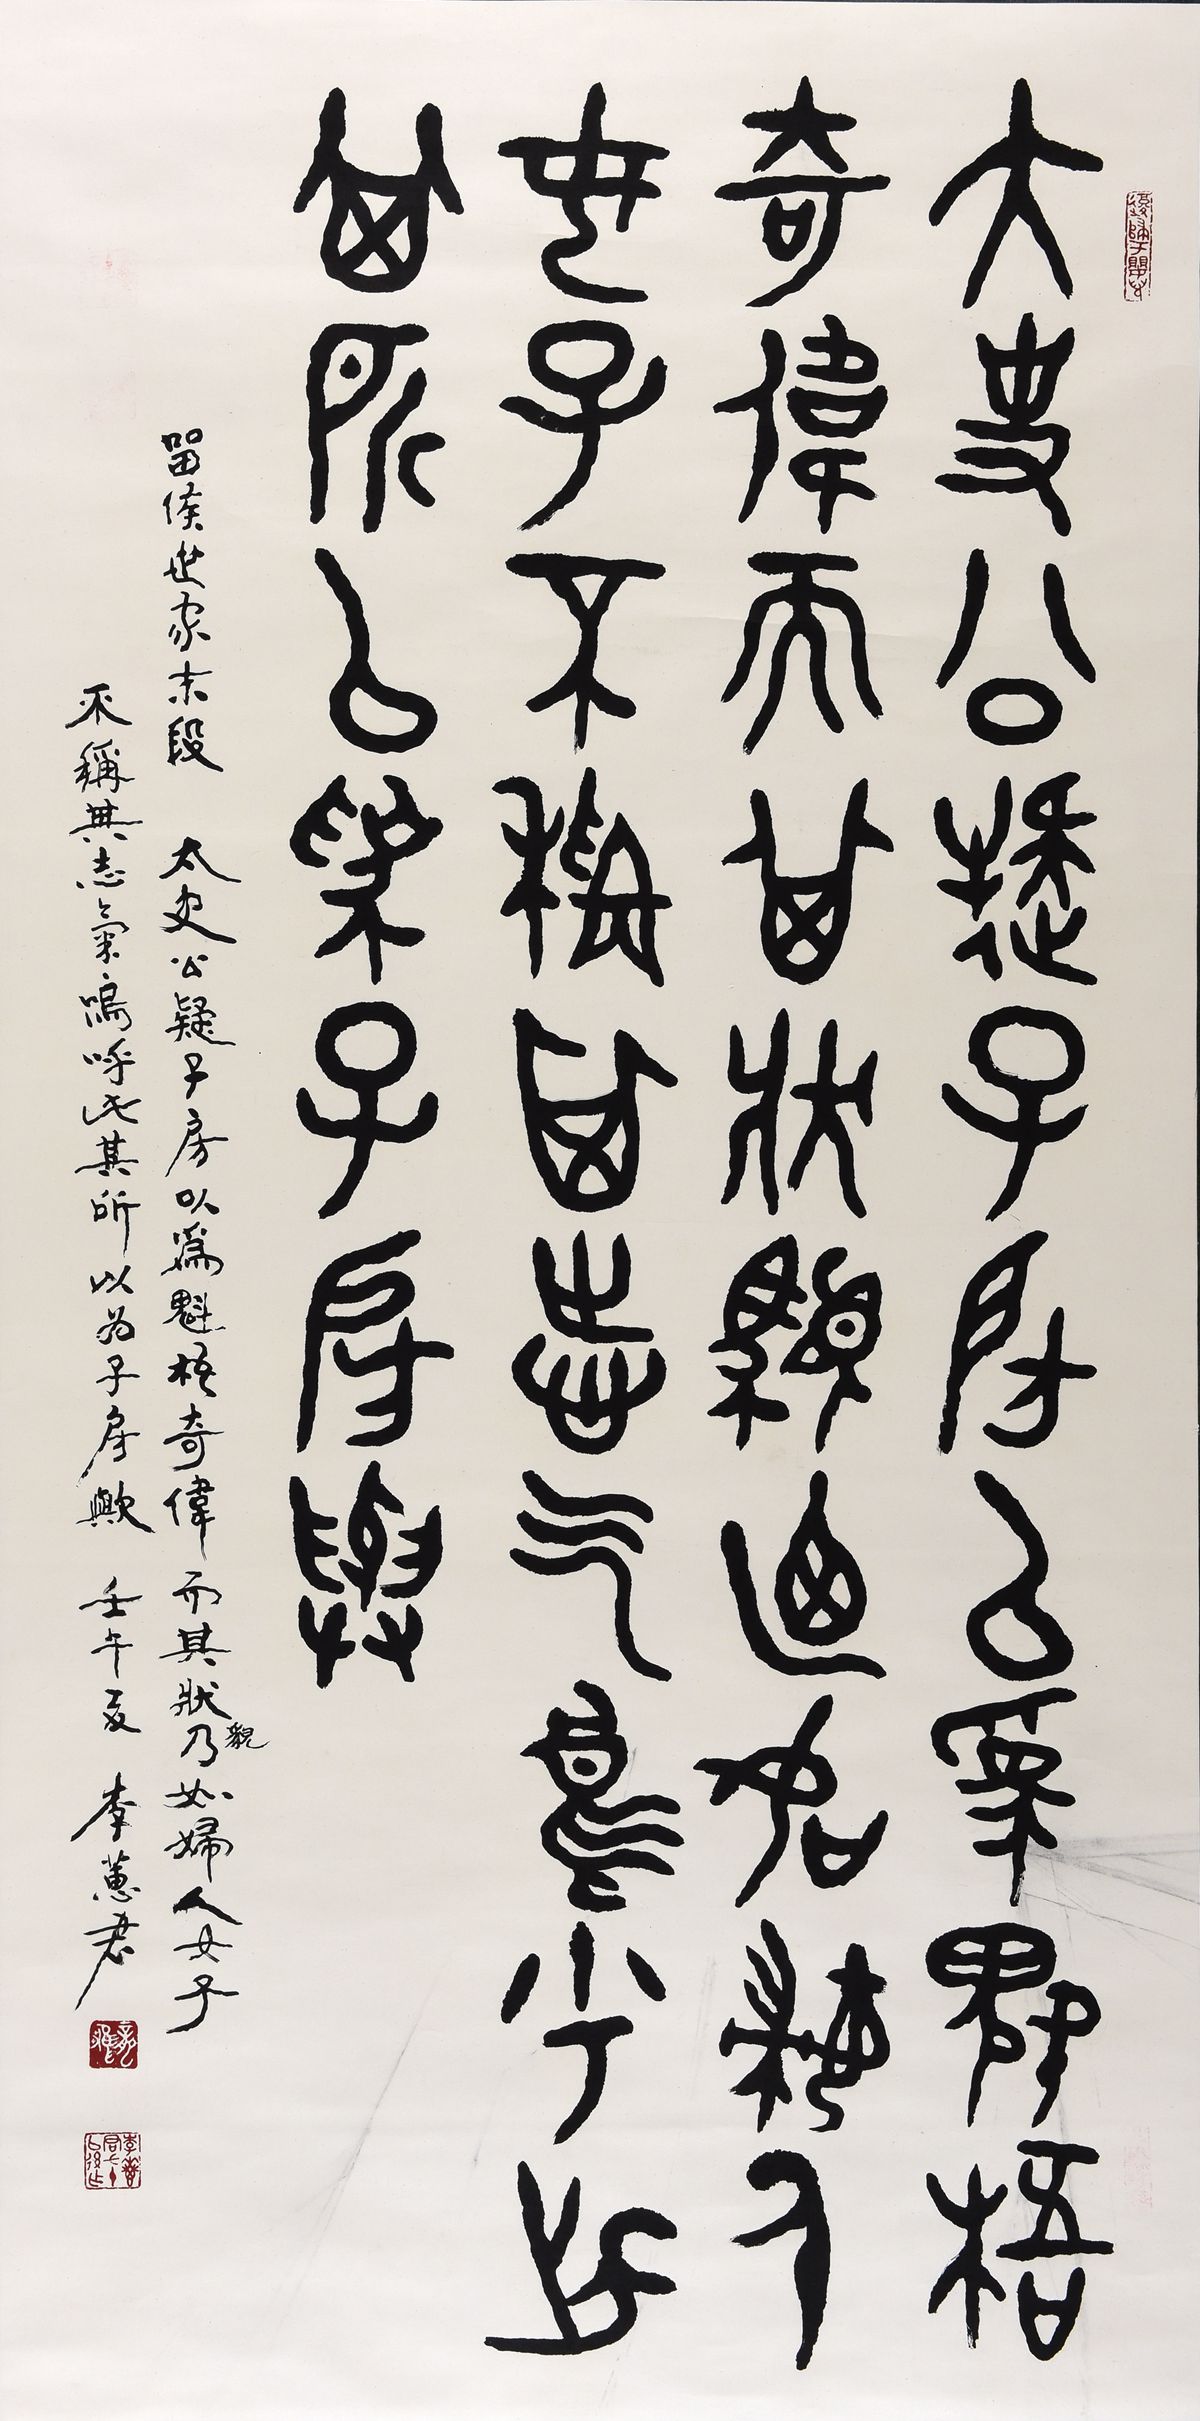 大史公疑子房以為魁梧
奇偉而其狀貌迺如婦人
女子不稱其志气烏乎此
其所以為子房與
留侯世家末段 太史公疑子房以為魁梧奇偉而其狀貌乃如婦人女子
不稱其志氣嗚呼此其所以為子房歟 壬午夏 李蕙君